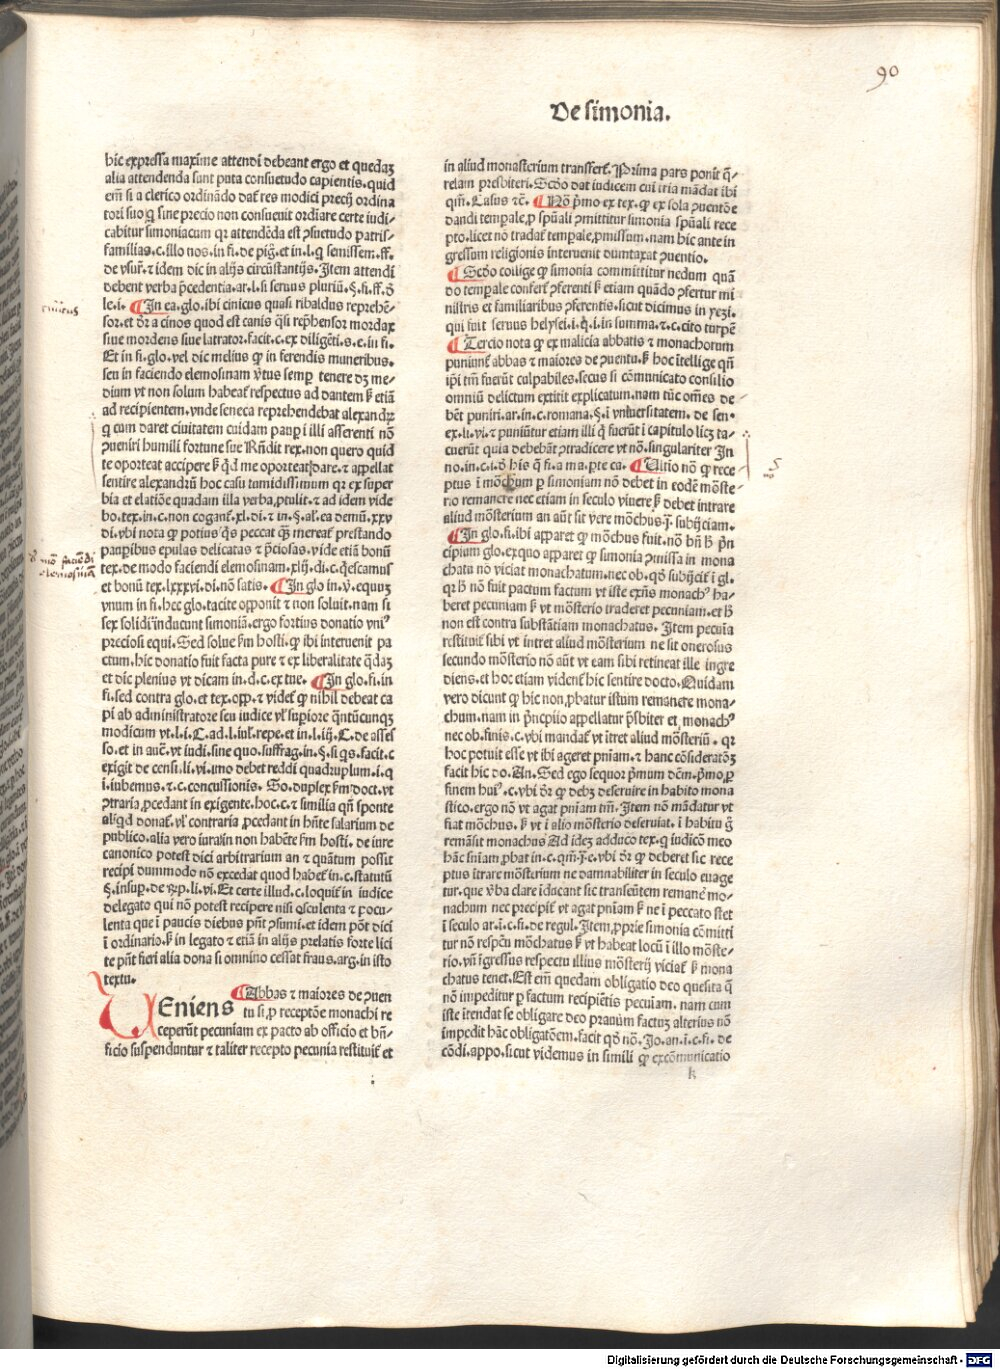 90
De simonia.
hic expressa maxime attendi debeant ergo et quedaʒ
alia attendenda sunt puta consuetudo capientis. quid
em̄ si a clerico ordinādo dat̄ res modici precij ordina
tori suo q̄ sine precio non consueuit ordiare certe iudi⸗
cabitur simoniacum qr attendēda est ꝯsuetudo patris⸗
familias. c. fllo nos. in fi. de piḡ. et in. l. q semissem. ff.
de vsur̄. ⁊ idem dic in alijs circūstantijs. Item attendi
debent verba p̄cedentia. ar. l. si seruus pluriū. §. fi. ff. ꝺ̄
le. i. ¶ In ea. glo. ibi cinicus quasi ribaldus reprehē⸗
sor. et dr̄ a cinos quod est canis q̄si rep̄hensor mordax
siue mordens siue latrator. facit. c. ex diligēti. s. e. in fi.
Et in fi. glo. vel dic melius ꝙ in ferendis muneribus.
seu in faciendo elemosinam v̄tus semꝑ tenere dʒ me⸗
dium vt non solum habeat̄ respectus ad dantem ꝭ etiā
ad recipientem. vnde seneca reprehendebat alexandꝝ
q cum daret ciuitatem cuidam pauꝑi illi asserenti nō
ꝯueniri humili fortune sue Rn̄dit rex. non quero quid
te oporteat accipere ꝭ q̄d me oporteat dare. ⁊ appellat
sentire alexandrū hoc casu tumidissimum qr ex super
bia et elatiōe quadam illa verba ꝓtulit. ⁊ ad idem vide
bo. tex. in. c. non cogant̄. xl. di. ⁊ in. §. al. ea demū. xxv
di. vbi nota ꝙ potius q̄s peccat q̄ꝫ mereat̄ prestando
pauꝑibus epulas delicatas ⁊ p̄ciosas. vide etiā bonū
tex. de modo faciendi elemosinam. xlij. di. c. q̄escamus
et bonū tex. lxxxvi. di. nō satis. ¶ In glo in. v̄. equuʒ
vnum in fi. hec glo. tacite opponit ⁊ non soluit. nam si
sex solidi inducunt simoniā. ergo fortius donatio vniꝰ
preciosi equi. Sed solue ẜm hosti. ꝙ ibi interuenit pa
ctum. hic donatio fuit facta pure ⁊ ex liberalitate q̄daʒ
et dic plenius vt dicam in. d. c. ex tue. ¶ In glo. fi. in
fi. sed contra glo. et tex. opp. ⁊ videt̄ ꝙ nihil debeat ca
pi ab administratore seu iudice vl̓ supiore q̄ntūcunqʒ
modicum vt. l. i. C. ad. l. iul̓. repe. et in. l. iij. C. de asses
so. et in aut̄. vt iudi. sine quo. suffrag. in. §. si qs. facit. c
exigit de censi. li. vi. imo debet reddi quadruplum. i. q
i. iubemus. ⁊. c. concussionis. So. duplex ẜm doct. vt
ꝯtraria ꝓcedant in exigente. hoc. c. ⁊ similia qn̄ sponte
aliq̄d donat̄. vl̓ contraria ꝓcedant in hn̄te salarium de
publico. alia vero iura in non habēte ẜm hosti. de iure
canonico potest dici arbitrarium an ⁊ quātum possit
recipi dummodo nō excedat quod habet̄ in. c. statutū
§. insuꝑ. de rescp. li. vi. Et certe illud. c. loquit̄ in iudice
delegato qui nō potest recipere nisi esculenta ⁊ pocu⸗
lenta que i paucis diebus pn̄t ꝯsumi. et idem pōt dici
i ordinario. ꝭ in legato ⁊ etiā in alijs prelatis forte lici
te pn̄t fieri alia dona si omnino cessat fraus. arg. in isto
textu.
UEniens ¶ Abbas ⁊ maiores de ꝯuen
tu si ꝓ receptōe monachi re
ceperūt pecuniam ex pacto ab officio et bn̄⸗
ficio suspenduntur ⁊ taliter recepto pecunia restituit̄ et
in aliud monasterium transfert̄. Prima pars ponit q̄⸗
relam presbiteri. Scḋo dat iudicem cui itia mādat ibi
qm̄. Casus ⁊c̄. ¶ Nō p̄mo ex tex. ꝙ ex sola ꝯuentōe
dandi tempale ꝓ spūali ꝯmittitur simonia spūali rece
pto. licet nō tradat̄ tempale ꝓmissum. nam hic ante in
gressum religionis interuenit dumtaxat ꝯuentio.
¶ Scḋo collige ꝙ simonia committitur nedum quā
do tempale confert̄ ꝯferenti ꝭ etiam quādo ꝯfertur mi
nistris et familiaribus ꝯferentis. sicut dicimus in yezi.
qui fuit seruus helysei. i. q̄. i. in summa. ⁊. c. cito turpē
¶ Tercio nota ꝙ ex malicia abbatis ⁊ monachorum
puniunt̄ abbas ⁊ maiores de ꝯuentu. ꝭ hoc itellige qn̄
ip̄i tm̄ fuerūt culpabiles. secus si cōmunicato consilio
omniū delictum extitit explicatum. nam tūc om̄es de⸗
bēt puniri. ar. in. c. romana. §. i vniuersitatem. de sen⸗
ex. li. vi. ⁊ puniūtur etiam illi q̄ fuerūt i capitulo licʒ ta⸗
cuerūt quia debebāt ꝯtradicere vt nō. singulariter In
no. in. c. i. ꝺ̄ his q̄ fi. a ma. ꝑte ca. ¶ Ultio nō ꝙ rece⸗
ptus i mōchum ꝑ simoniam nō debet in eodē mōste⸗
rio remanere nec etiam in seculo viuere ꝭ debet intrare
aliud mōsterium an aūt sit vere mōchus. ꝗ̄. subijciam.
¶ In glo. fi. ibi apparet ꝙ mōchus fuit. nō bn̄ ꝺ̄ pn̄
cipium glo. ex quo apparet ꝙ simonia ꝯmissa in mona
chatu nō viciat monachatum. nec ob. qḋ subijcit̄ i gl.
qr ꝺ̄ nō fuit pactum factum vt iste exn̄s monachꝰ ha⸗
beret pecuniam ꝭ vt mōsterio traderet pecuniam. et ꝺ̄
non est contra substātiam monachatus. Item pecuīa
restituit̄ sibi vt intret aliud mōsterium ne sit onerosus
secundo mōsterio nō aūt vt eam sibi retineat ille ingre
diens. et hoc etiam vident̄ hic sentire docto. Quidam
vero dicunt ꝙ hic non ꝓbatur istum remanere mona⸗
chum. nam in p̄ncpiio appellatur p̄sbiter et monachꝰ
nec ob. finis. c. vbi mandat̄ vt itret aliud mōsteriū. qr
hoc potuit esse vt ibi ageret pn̄iam. ⁊ hanc cōsideratōʒ
facit hic do. An. Sed ego sequor p̄mum dc̄m. p̄mo ꝓ
finem huiꝰ. c. vbi dr̄ ꝙ debʒ deseruire in habito mona
stico. ergo nō vt agat pn̄iam tm̄. Item nō mādatur vt
fiat mōchus. ꝭ vt i alio mōsterio deseruiat. i habitu g̃
remāsit monachus Ad ideʒ adduco tex. q iudicō meo
hāc sn̄iam ꝓbat in. c. qm̄. ꝗ̄. e. vbi dr̄ ꝙ deberet sic rece
ptus itrare mōsterium ne damnabiliter in seculo euage
tur. que v̄ba clare idācant sic transeūtem remanē mo⸗
nachum nec precipit̄ vt agat pn̄iam ꝭ ne i peccato stet
i seculo. ar. i. c. fi. de regul. Item ꝓprie simonia cōmitti
tur nō respc̄u mōchatus ꝭ vt habeat locū i illo mōste⸗
rio. vn̄ igressus respectu illius mōsterij viciat̄ ꝭ mona
chatus tenet. Est em̄ quedam obligatio deo quesita q̄
nō impeditur ꝑ factum recipiētis pecuiam. nam cum
iste itendat se obligare deo prauum factuʒ alterius nō
impedit hāc obligatōem. facit qḋ nō. Jo. an. i. c. fi. de
cōdi. appo. sicut videmus in simili ꝙ excōmunicatio
k